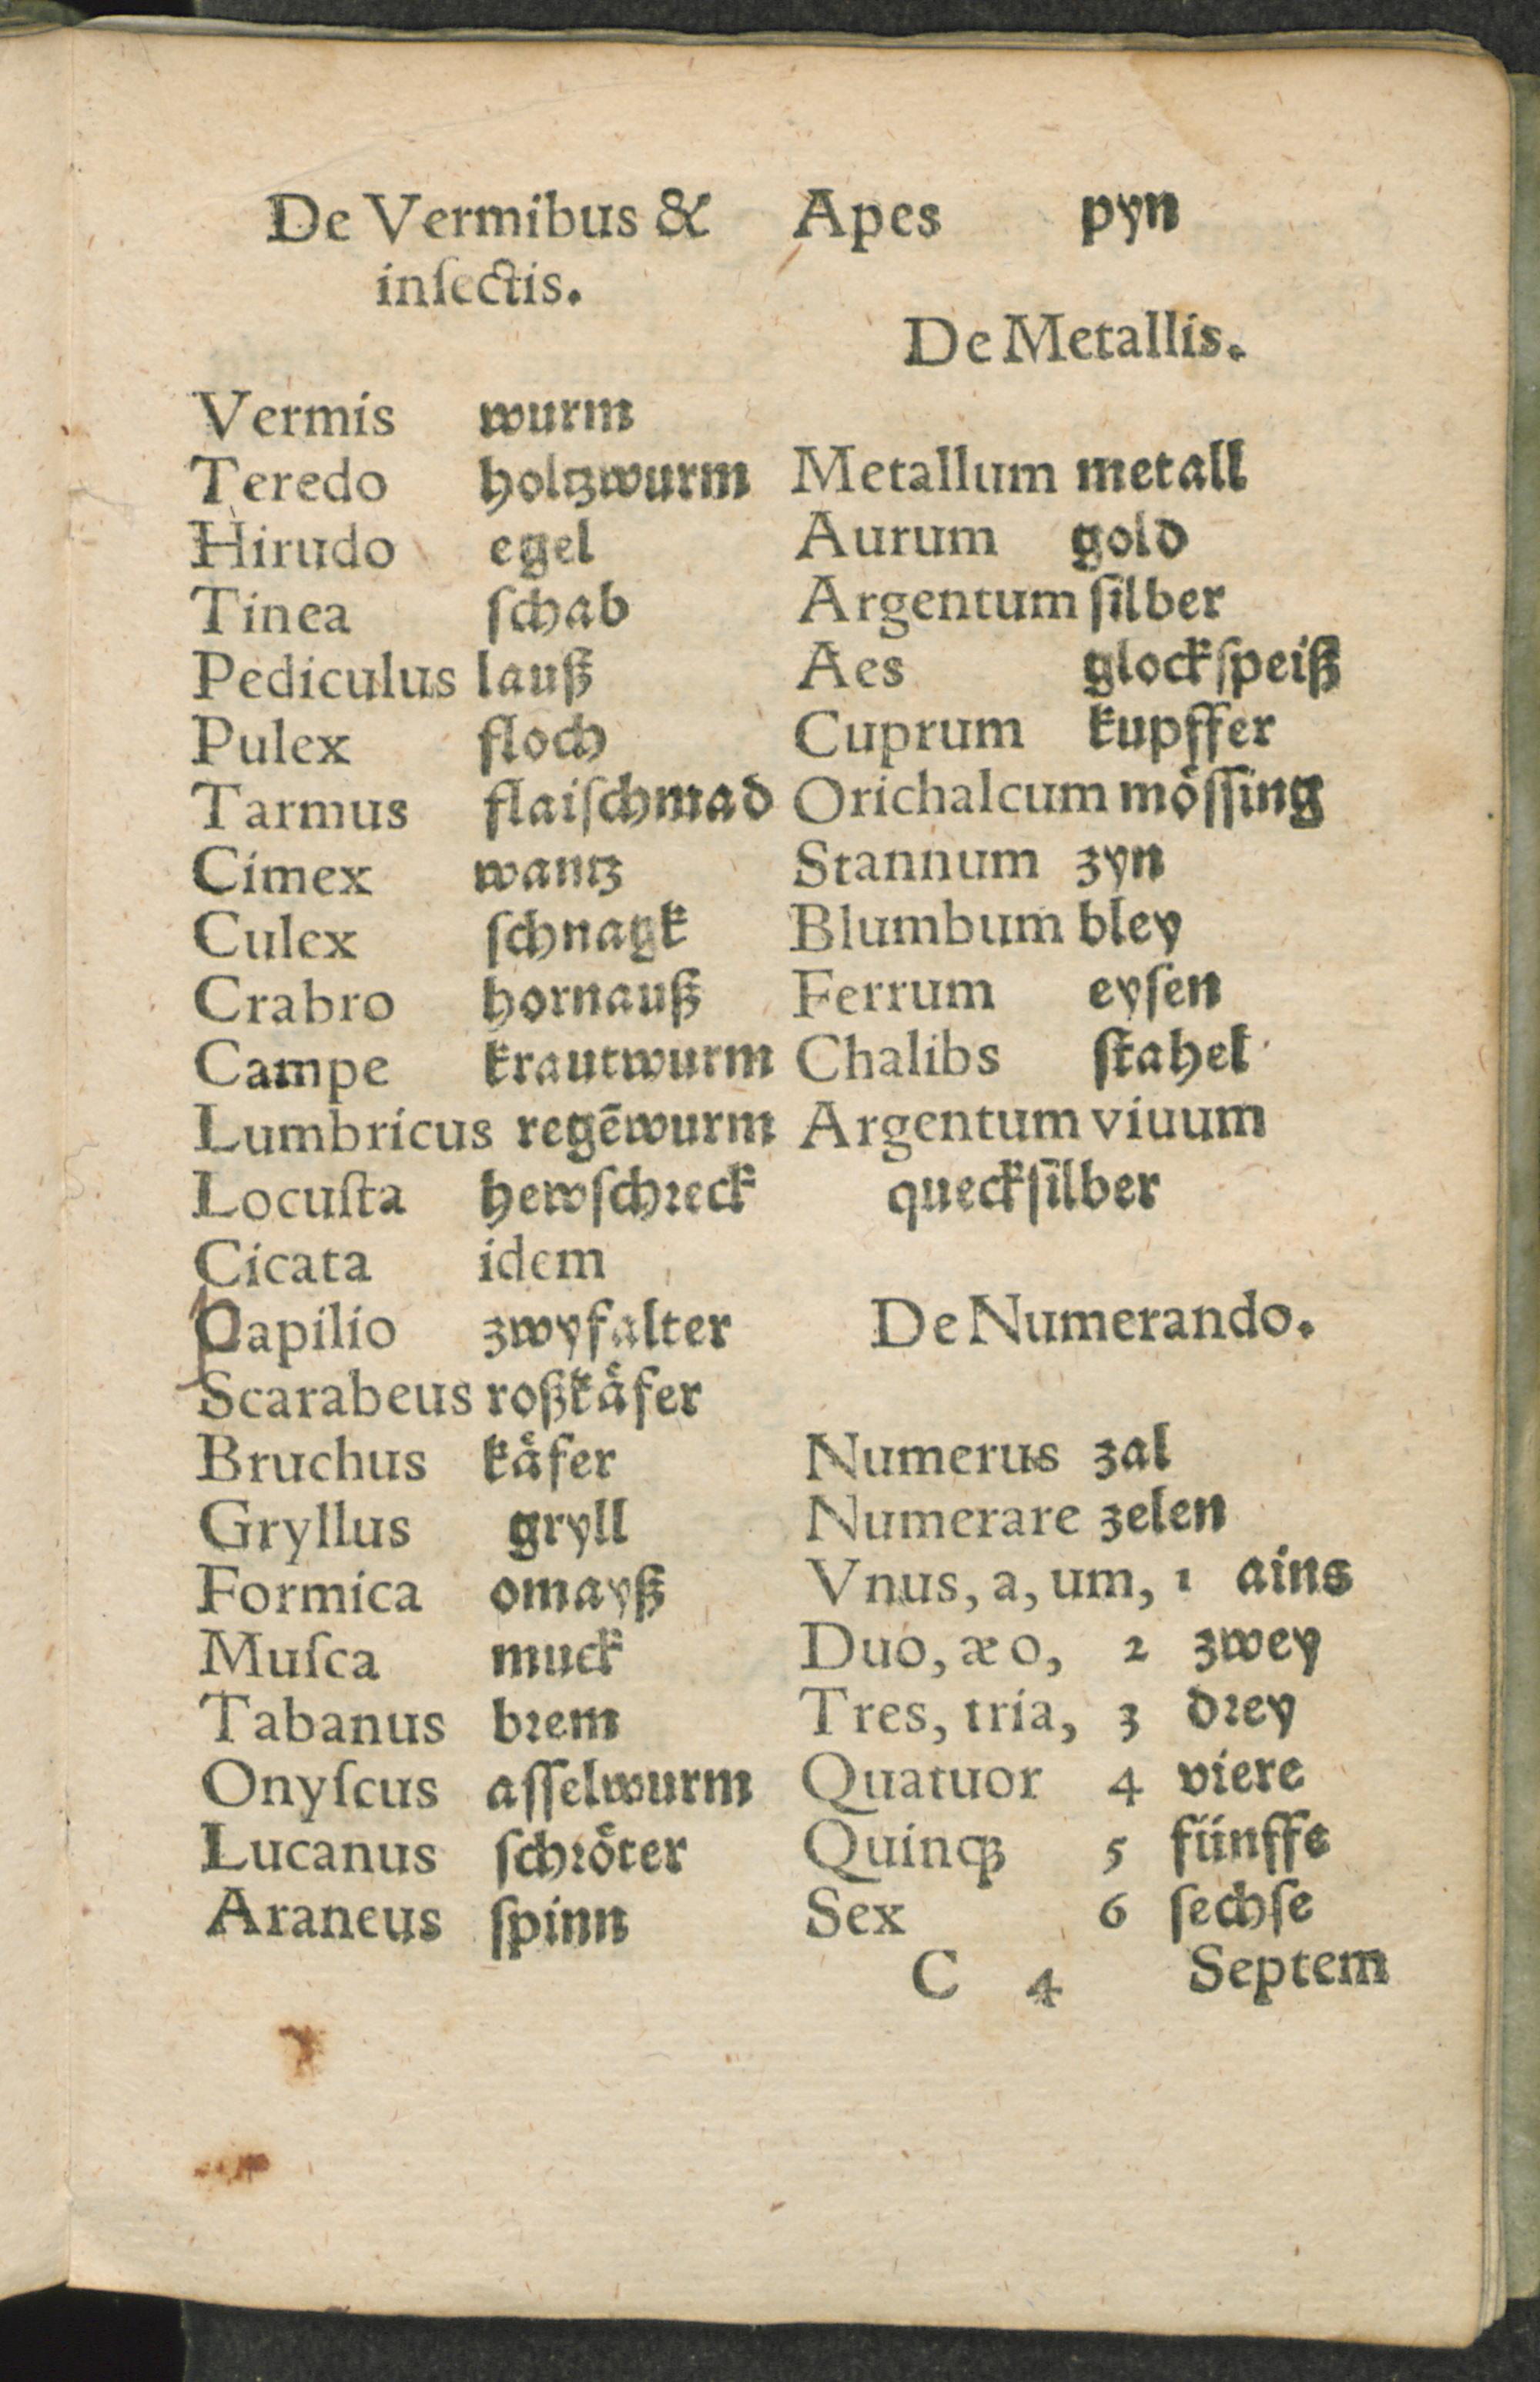 De Vermibus &
insectis.
Vermis wurm
Teredo holtzwurm
Hirudo egel
Tinea ſchab
Pediculus lauß
Pulex floch
Tarmus flaiſchmad
Cimex wantz
Culex ſchnagk
Crabro hornauß
Campe krautwurm
Lumbricus regēwurm
Locuſta hewſchreck
Cicata idem
Papilio zwyfalter
Scarabeus roßkåfer
Bruchus kåfer
Gryllus gryll
Formica omayß
Muſca muck
Tabanus brem
Onyſcus aſſelwurm
Lucanus ſchröter
Araneus ſpinn
Apes pyn
De Metallis.
Metallum metall
Aurum gold
Argentum ſilber
Aes glockſpeiß
Cuprum kupffer
Orichalcum möſſing
Stannum zyn
Blumbum bley
Ferrum eyſen
Chalibs ſtahel
Argentum viuum
queckſilber
De Numerando.
Numerus zal
Numerare zelen
Vnus, a, um, 1 ains
Duo, æ o, 2 zwey
Tres, tria, 3 drey
Quatuor 4 viere
Quinqꝫ 5 fünffe
Sex 6 ſechſe
C 4 Septem